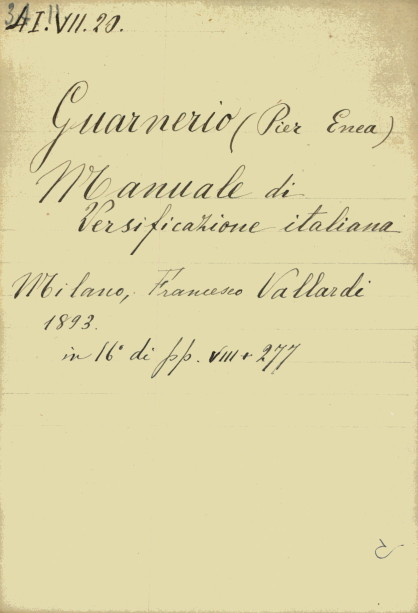 I.VII.20.
Guarnerio (Pier Enea)
Manuale di
Versificazione italiana
Milano, Francesco Vallardi
1893.
in 16° di pp. VIII + 277